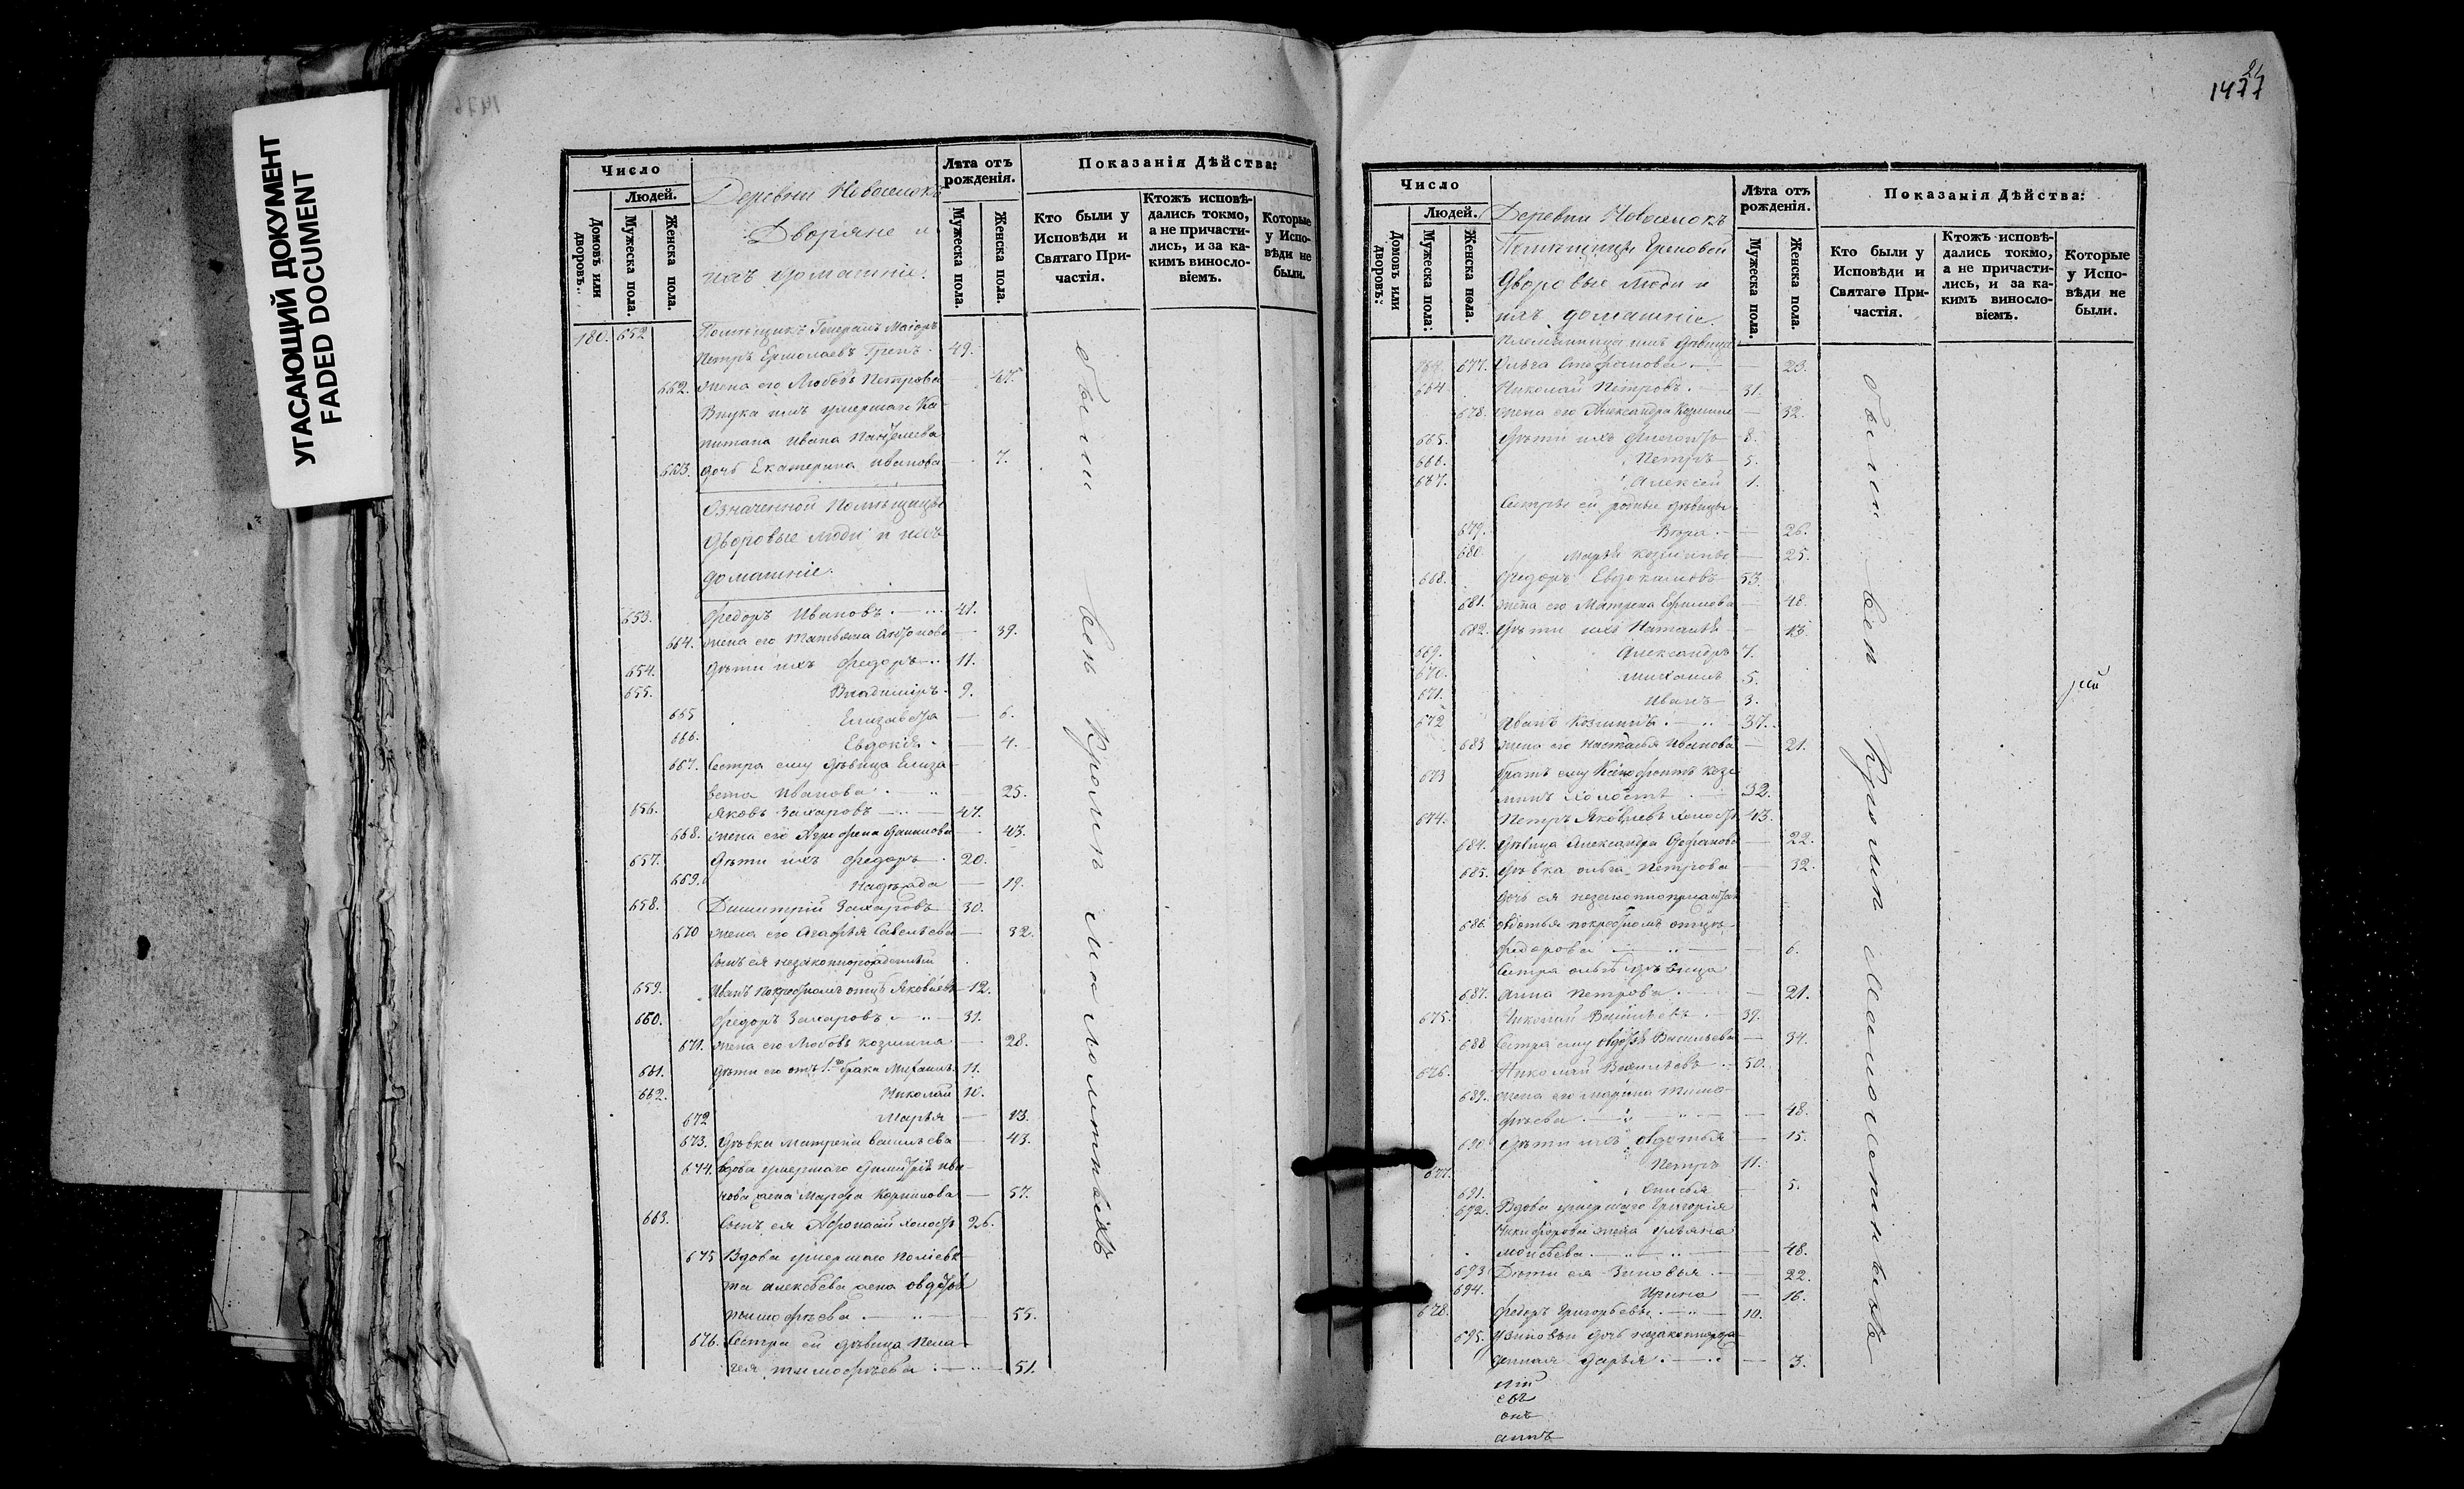 УГАСАЮЩИЙ ДОКУМЕНТ
FADED DOCUMENT
Число
Людей.
Домовъ или дворовъ.
Мужеска пола.
Женска пола.
Деревни Новоселокъ
Дворяне и
ихъ домашніе.
Лѣта отъ рожденія.
Мужеска пола.
Женска пола.
Показанія Дѣйства:
Кто были у Исповѣди и Святаго Причастія.
Ктожъ исповѣдались токмо, а не причастились, и за какимъ винословіемъ.
Которые у Исповѣди не были.
180. 652 Помѣщикъ Генералъ Маіоръ
Петръ Ермолаевъ 49.
662. жена его Любовь Петрова — 47.
Внука ихъ умершаго Ка
питана Ивана Пантелеева
663. дочь Екатерина Иванова — 7.
Означенной Помѣщицы
дворовые люди и ихъ
домашніе.
653. Федоръ Ивановъ. — 41.
664. жена его Татьяна Антонова — 39.
654. дѣти ихъ Федоръ — 11.
655. Владиміръ. 9.
665 Елизавета — 6.
666. Евдокія. — 4.
667. Сестра ему дѣвица Елиза
вета Иванова. — 25.
656. Яковъ Захаровъ — 47.
668. жена его Агрофена Данилова — 43.
657. дѣти ихъ Федоръ. 20.
669. Надежда — 19.
658. Димитрій Захаровъ 30.
670 жена его Агафья Савельева — 32.
Сынъ ея незаконнорожденный
659. Иванъ по крестномъ отцѣ Яковлевъ 12.
660. Федоръ Захаровъ. — 31.
671. жена его Любовь Козмина — 28.
661. дѣти его отъ 1го брака Михаилъ. 11.
662. Николай 10.
672 Марья — 13.
673. дѣвка Матрена Васильева — 43.
674. вдова умершаго Димитрія Ива
нова жена Марфа Корнилова — 57.
663. Сынъ ея Афонасій холостъ 26.
675 Вдова умершаго Поліевк
та Алексѣева жена Овдотья
Тимофѣева. — 55.
676. Сестра ей дѣвица Пела
гея Тимофѣева. — 51.
были всѣ кромѣ малолѣтныхъ
21
1477
Число
Людей.
Домовъ или дворовъ:
Мужеска пола:
Женска пола.
Деревни Новоселокъ
Помѣщицы
Дворовые люди и
ихъ домашніе.
Лѣта отъ рожденія.
Мужеска пола.
Женска пола.
Показанія Дѣйства:
Кто были у Исповѣди и Святаго Причастія.
Ктожъ исповѣдались токмо, а не причастились, и за какимъ винословіемъ.
Которые у Исповѣди не были.
Племянница ихъ дѣвица
677. Ольга Стефанова. — 23.
664 Николай Петровъ. 31.
678. жена его Александра Козмина — 32.
665. Дѣти ихъ 8.
666. Петръ 5.
667. Алексей 1.
Сестры ей родныя дѣвицы
679. Вѣра. — 26.
680 Марья Козмины — 25.
668. Федоръ Евдокимовъ 53.
681. жена его Матрена Ефимова — 48.
682. Дѣти ихъ Наталья — 13.
669. Александръ 7.
670. Михаилъ 5.
671. Иванъ 3.
672 Иванъ Козминъ. — 37.
683 жена его Настасья Иванова — 21.
673 Братъ ему Ксенофонтъ Коз
минъ холостъ 32.
674. Петръ Яковлевъ холостъ 43.
684. Дѣвица Александра Стефанова — 22.
685. Дѣвка Ольга Петрова — 32.
дочь ея незаконноприжитая
686. Овдотья по крестномъ отцѣ
Федорова — 6.
Сестра Ольгѣ дѣвица
687. Анна Петрова. — 21.
675. Николай Васильевъ. 39.
688 Сестра ему Овдотья Васильева — 34.
676. Николай Васильевъ. 50.
689. жена его Марина Тимо
фѣева. — 48.
690 Дѣти ихъ Овдотья — 15.
677. Петръ 11.
691. — 5.
692. Вдова умершаго Григорія
Никифорова жена Ульяна
Моисѣева. — 48.
693 Дѣти ея Зиновья. — 22.
694. Ирина — 16.
678. Федоръ Григорьевъ. — 10.
695. У Зиновьи дочь незаконнорож
денная Дарья. — 3.
были всѣ кромѣ малолѣтныхъ